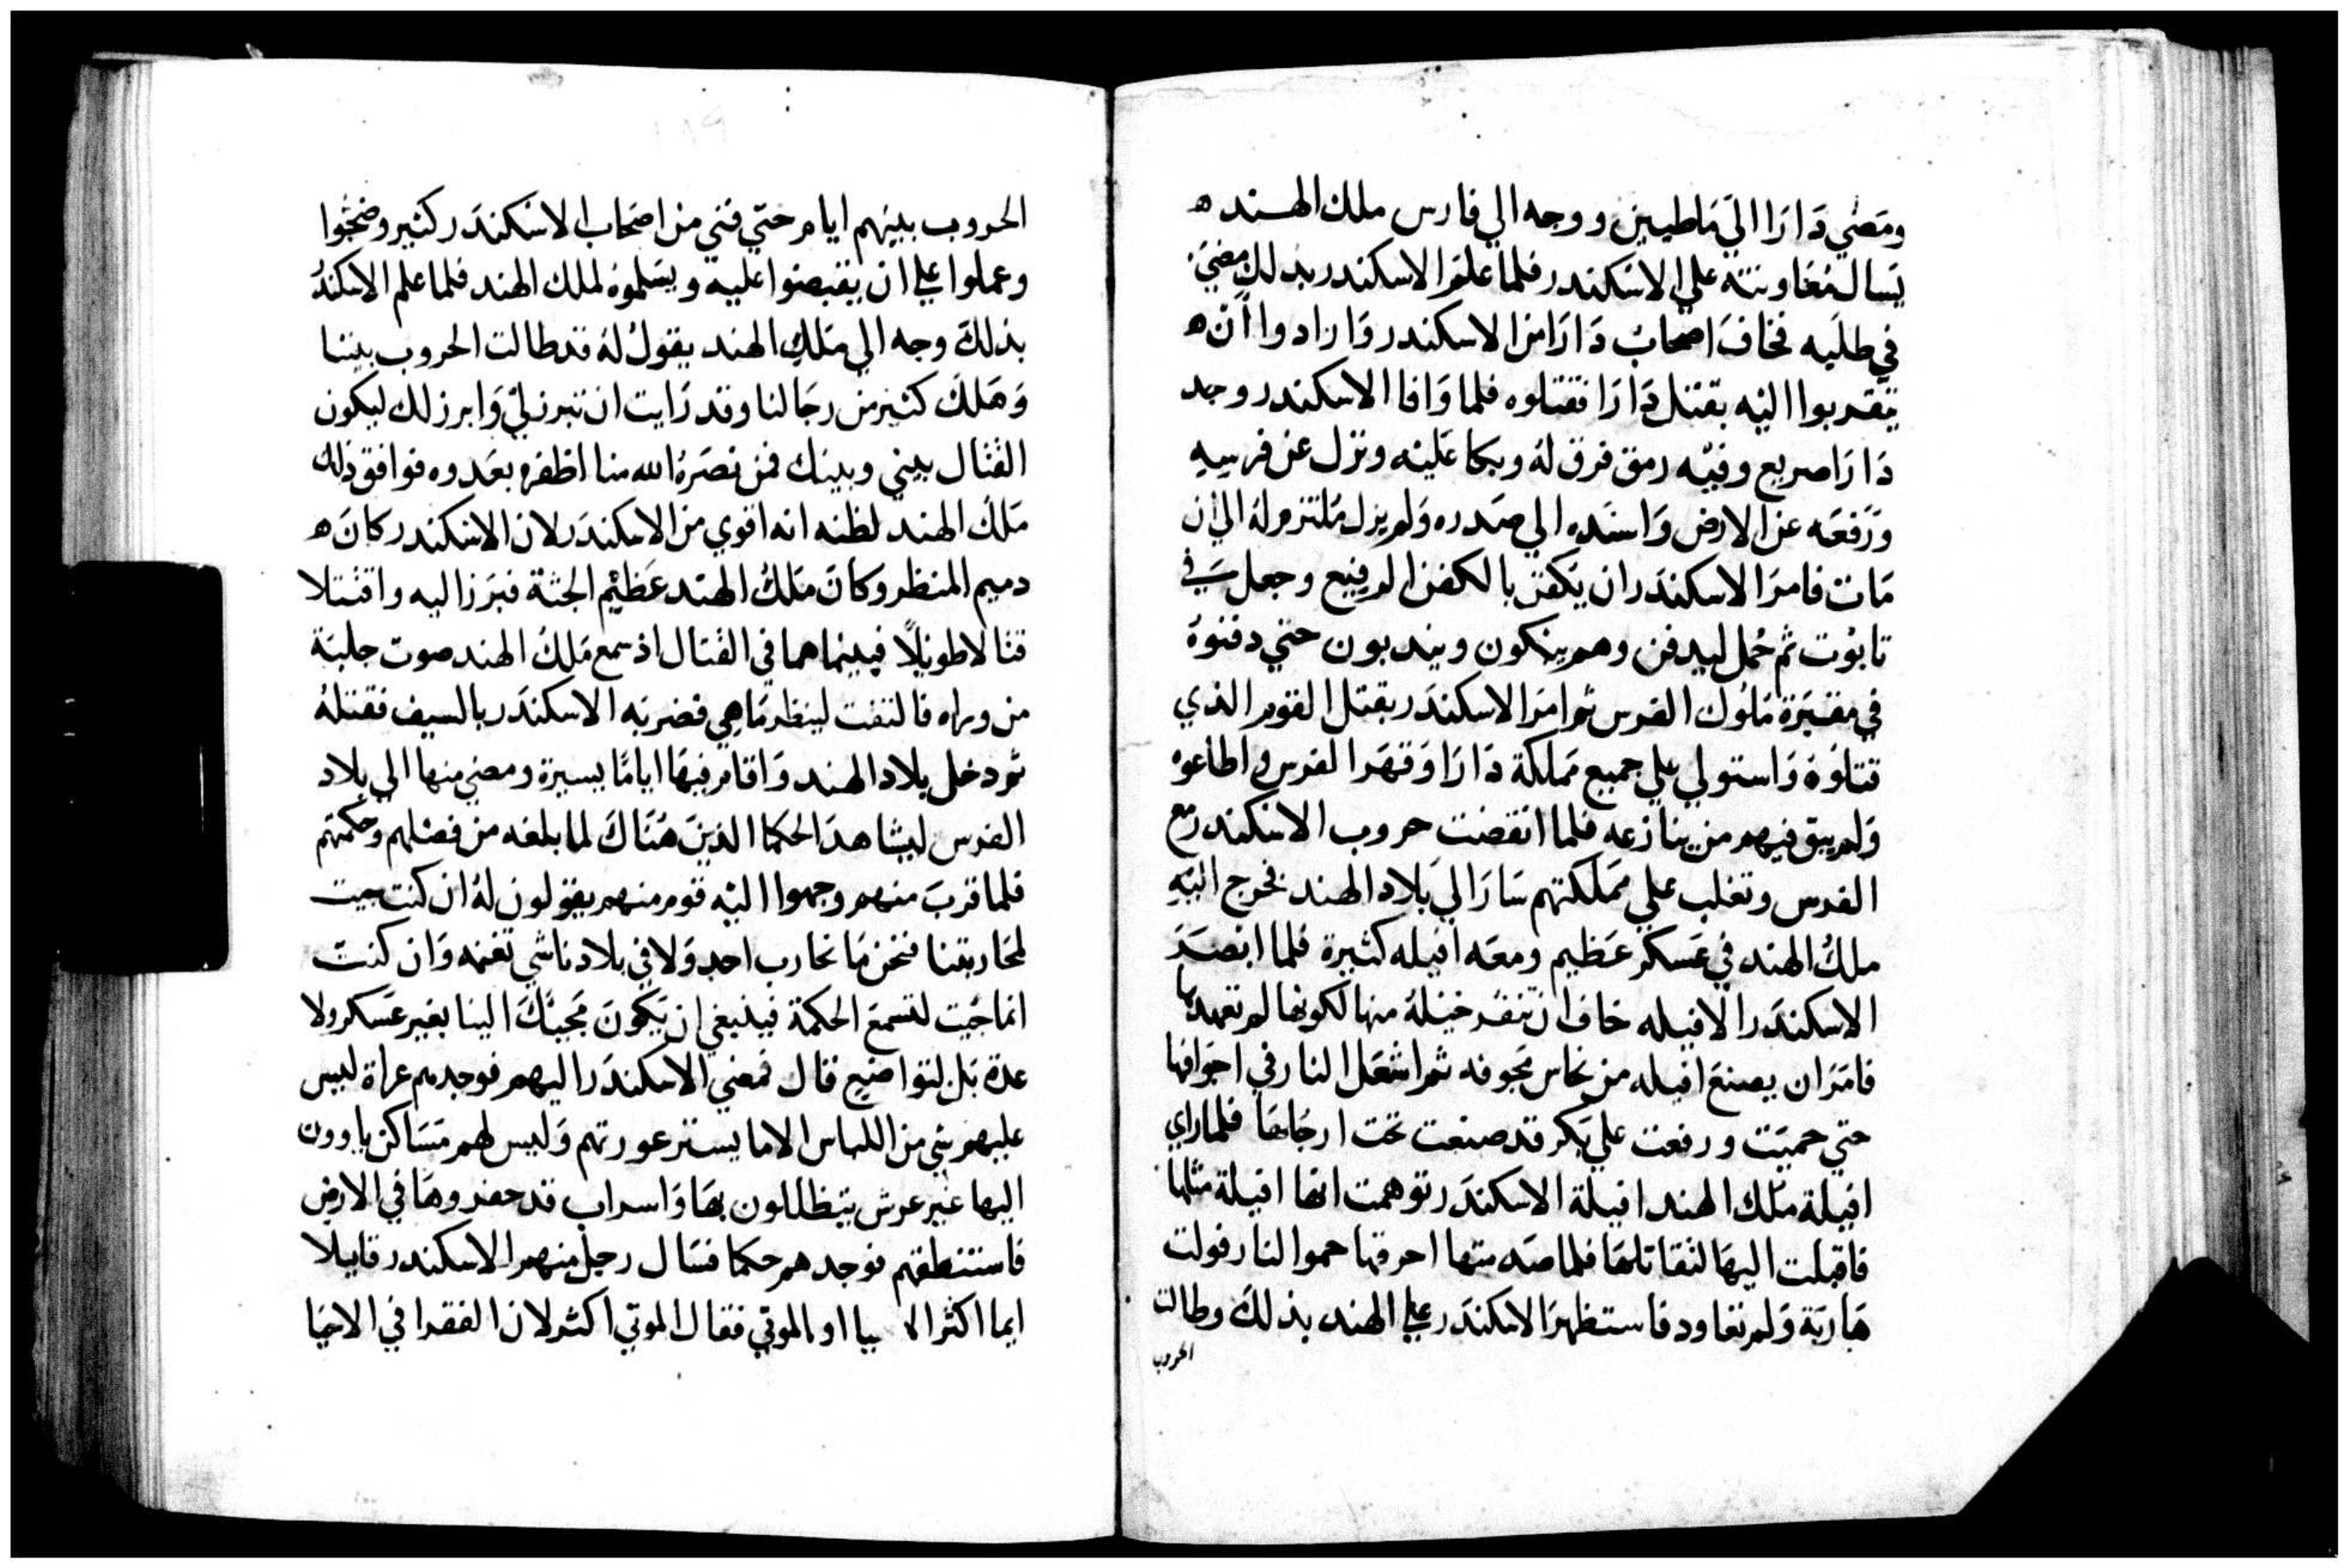 ومَضي دَارَا الىَ مَاطيين ووجه الي فارس ملك الهند ه
يَسال مُعَاونته علي الاسْكندر فلما علم الاسكندر بذلك مضيَ
في طلبه فخافَ اصحابُ دَارَا من الاسكندر وَارادوا أن ه
يتقربوا اليْه بقتل دَارَا فقتلوه فلما وَافا الاسكندر وجد
دَارَا صريع وفيْه رمق فرق لهُ وبكا عَليْه ونزل عن فرسِهِ
ورَفعَه عن الارض وَاسنَده الي صَدره وَلم يزل مُلتزم لهُ الي ان
مَات فامرَ الاسكندَر ان يَكفن بالكفن الرفيع وجعل في
تابوُت ثم حُمل ليدفن وهم يبكون ويندبون حتي دفنوهُ
في مقبَرَة مُلوُك الفرس ثم امرَ الاسكندَر بقتل القوم الذي
قتلوُهُ وَاستولي علي جميع مَملكة دَارَا وَقهَر الفرس واطاعوه
وَلم يبق فيهم من ينازعه فلما انقضت حروب الاسْكندر مع
الفرس وتغلب علي مَملكتهم سَارَ اليَ بَلاد الهند فخرج اليْهِ
ملكُ الهند في عَسكر عَظيم ومعَه افيله كثيرة فلما ابْصَرَ
الاسكندَر الافيله خافَ ان تنفر خيْلهُ منها لكونها لم تعهدها
فامَرَ ان يصنعَ افيله من نحاس مَجوفه ثم اشعَل النار في اجوَافها
حتي حميَت ورفعت علي بَكر قد صنعت تحت ارجَلهَا فلما راي
افيلة مَلك الهند افيلة الاسكندَر توهمت انها افيلة مثلها
فاقبلت اليهَا لتقاتلهَا فلما صَدمتها احرقها حموا النار فولت
هَاربَة وَلم تعاود فاستظهرَ الاسكندَر علي الهند بذلكَ وطالت
الحروب
الحروب بينهم ايام حتي فني من اصَحاب الاسْكندَر كثير وضجُوا
وعملوا علي ان يقبضوا عليه ويسَلموهُ لملك الهند فلما علم الاسكندُ
بذلكَ وجه الي مَلكِ الهند يقولُ لهُ قد طالت الحروب بيننا
وَهَلكَ كثير من رجَالنا وقد رَايت ان تبرز ليْ وَابرز لك ليكون
القتال بيني وبينك فمن نصَرَهُ الله منا اظفره بعَدوه فوافق ذلك
مَلك الهند لظنه انه اقوي من الاسكندَر لان الاسْكندر كانَ ه
دميم المنظر وكانَ مَلكُ الهند عَظيْم الجثة فبَرَز اليه واقتتلا
قتالا طويلًا فبينما هما في القتال اذ سمع مَلكُ الهند صوت جلبَة
من وراه فالتفت لينظر مَا هِي فضربَه الاسكندَر بالسيف فقتلهُ
ثم دخل بلاد الهند وَاقام فيهَا ايامًا يسيرة ومضي منها الي بلاد
الفرس ليشاهدَ الحكما الذينَ هَنَاكَ لما بلغه من فضلهم وحكمتهم
فلما قربَ منهم وجهوا اليْه قوم منهم يقولون لهُ ان كنت جيت
لمحاربتنا فنحن مَا نحارب احدٍ وَلا في بلادنا شي تغنمه وَان كنت
انما جَيت لتسَمعَ الحكمة فينبغي ان يَكونَ مَجيئَكَ الينا بغير عَسكر ولا
عدة بَل بتواضع قال فمضي الاسكندَر اليهم فوجدهم عراة ليس
عليهم شي من اللباس الا ما يستر عورتهم وَليس لهم مَسَاكن ياوون
اليها غيْر عرش يتظللون بهَا وَاسراب قد حفروهَا في الارض
فاستنطقهم فوجدهم حكما فسَال رجل منهم الاسكندر قايلا
ايما اكثر الا يا او الموتي فقال الموتي اكثر لان الفقرا في الاحيَا